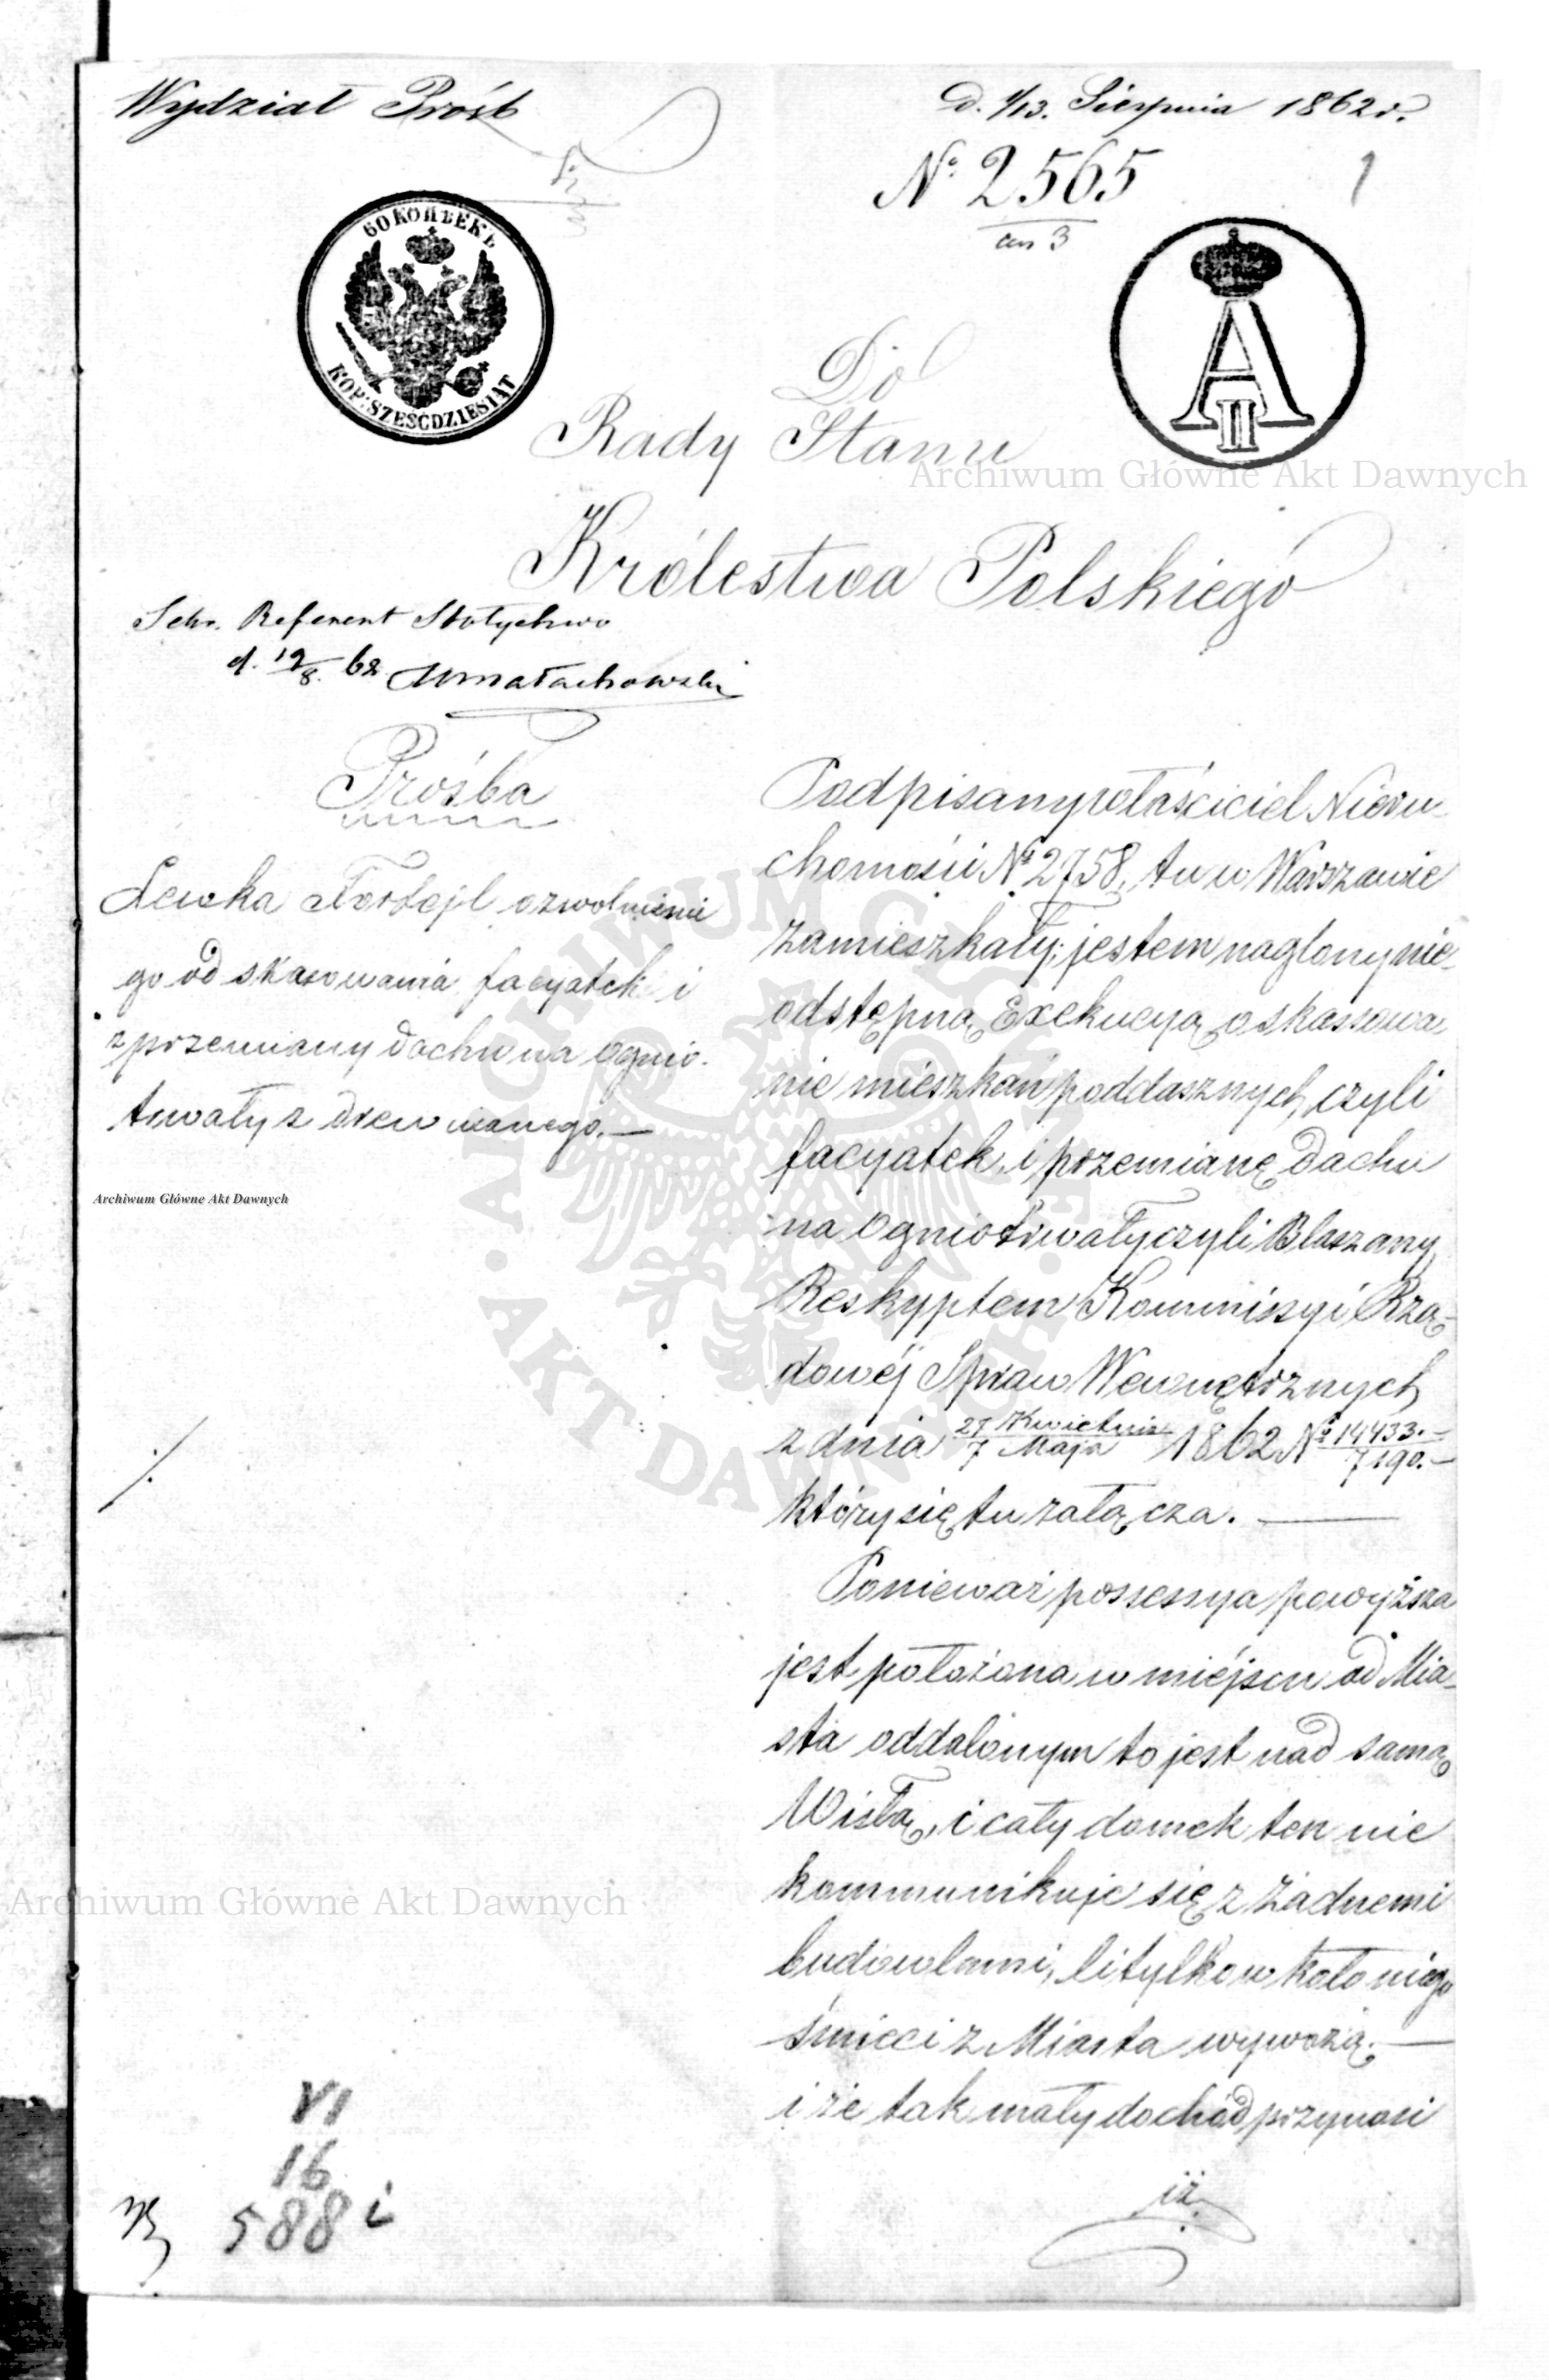 Wydział Próśb
d. 1/13. Sierpnia 1862 r.
№ 2565
an 3
1
60 КОПѢЕКЪ
KOP: SZESĆDZIESIĄT
A II
Do
Rady Stanu
Królestwa Polskiego
Referent Stołychwo
d. 19/8. 62 Małachowski
Prośba
Lewka o zwolnienie
go od skasowania facyatek i
z przemiany dachu na ognio-
trwały z drewnianego.—
Podpisany właściciel Nieru-
chomości № 2758, tu w Warszawie
zamieszkały; jestem naglony nie-
odstępną Exekucyą o skassowa
nie mieszkań poddasznych, czyli
facyatek, i przemianę dachu
na Ogniotrwały czyli Blaszany
Reskyptem Kommissyi Rzą-
dowéj Spraw Wewnętrznych
z dnia 27 Kwietnia / 7 Maja 1862 № 14433.— / 7190.—
który się tu załącza. —
Ponieważ possessya powyższa
jest położona w miéjscu od Mia-
sta oddalonym to jest nad samą
Wisłą, i cały domek ten nie
kommunikuje się z żadnemi
budowlami, li tylko w koło niego
śmieci z Miasta wywożą. —
i że tak mały dochód przynosi
iż
VI
16
588 i
Archiwum Główne Akt Dawnych
Archiwum Główne Akt Dawnych
Archiwum Główne Akt Dawnych
ARCHIWUM GŁÓWNE · AKT DAWNYCH ·